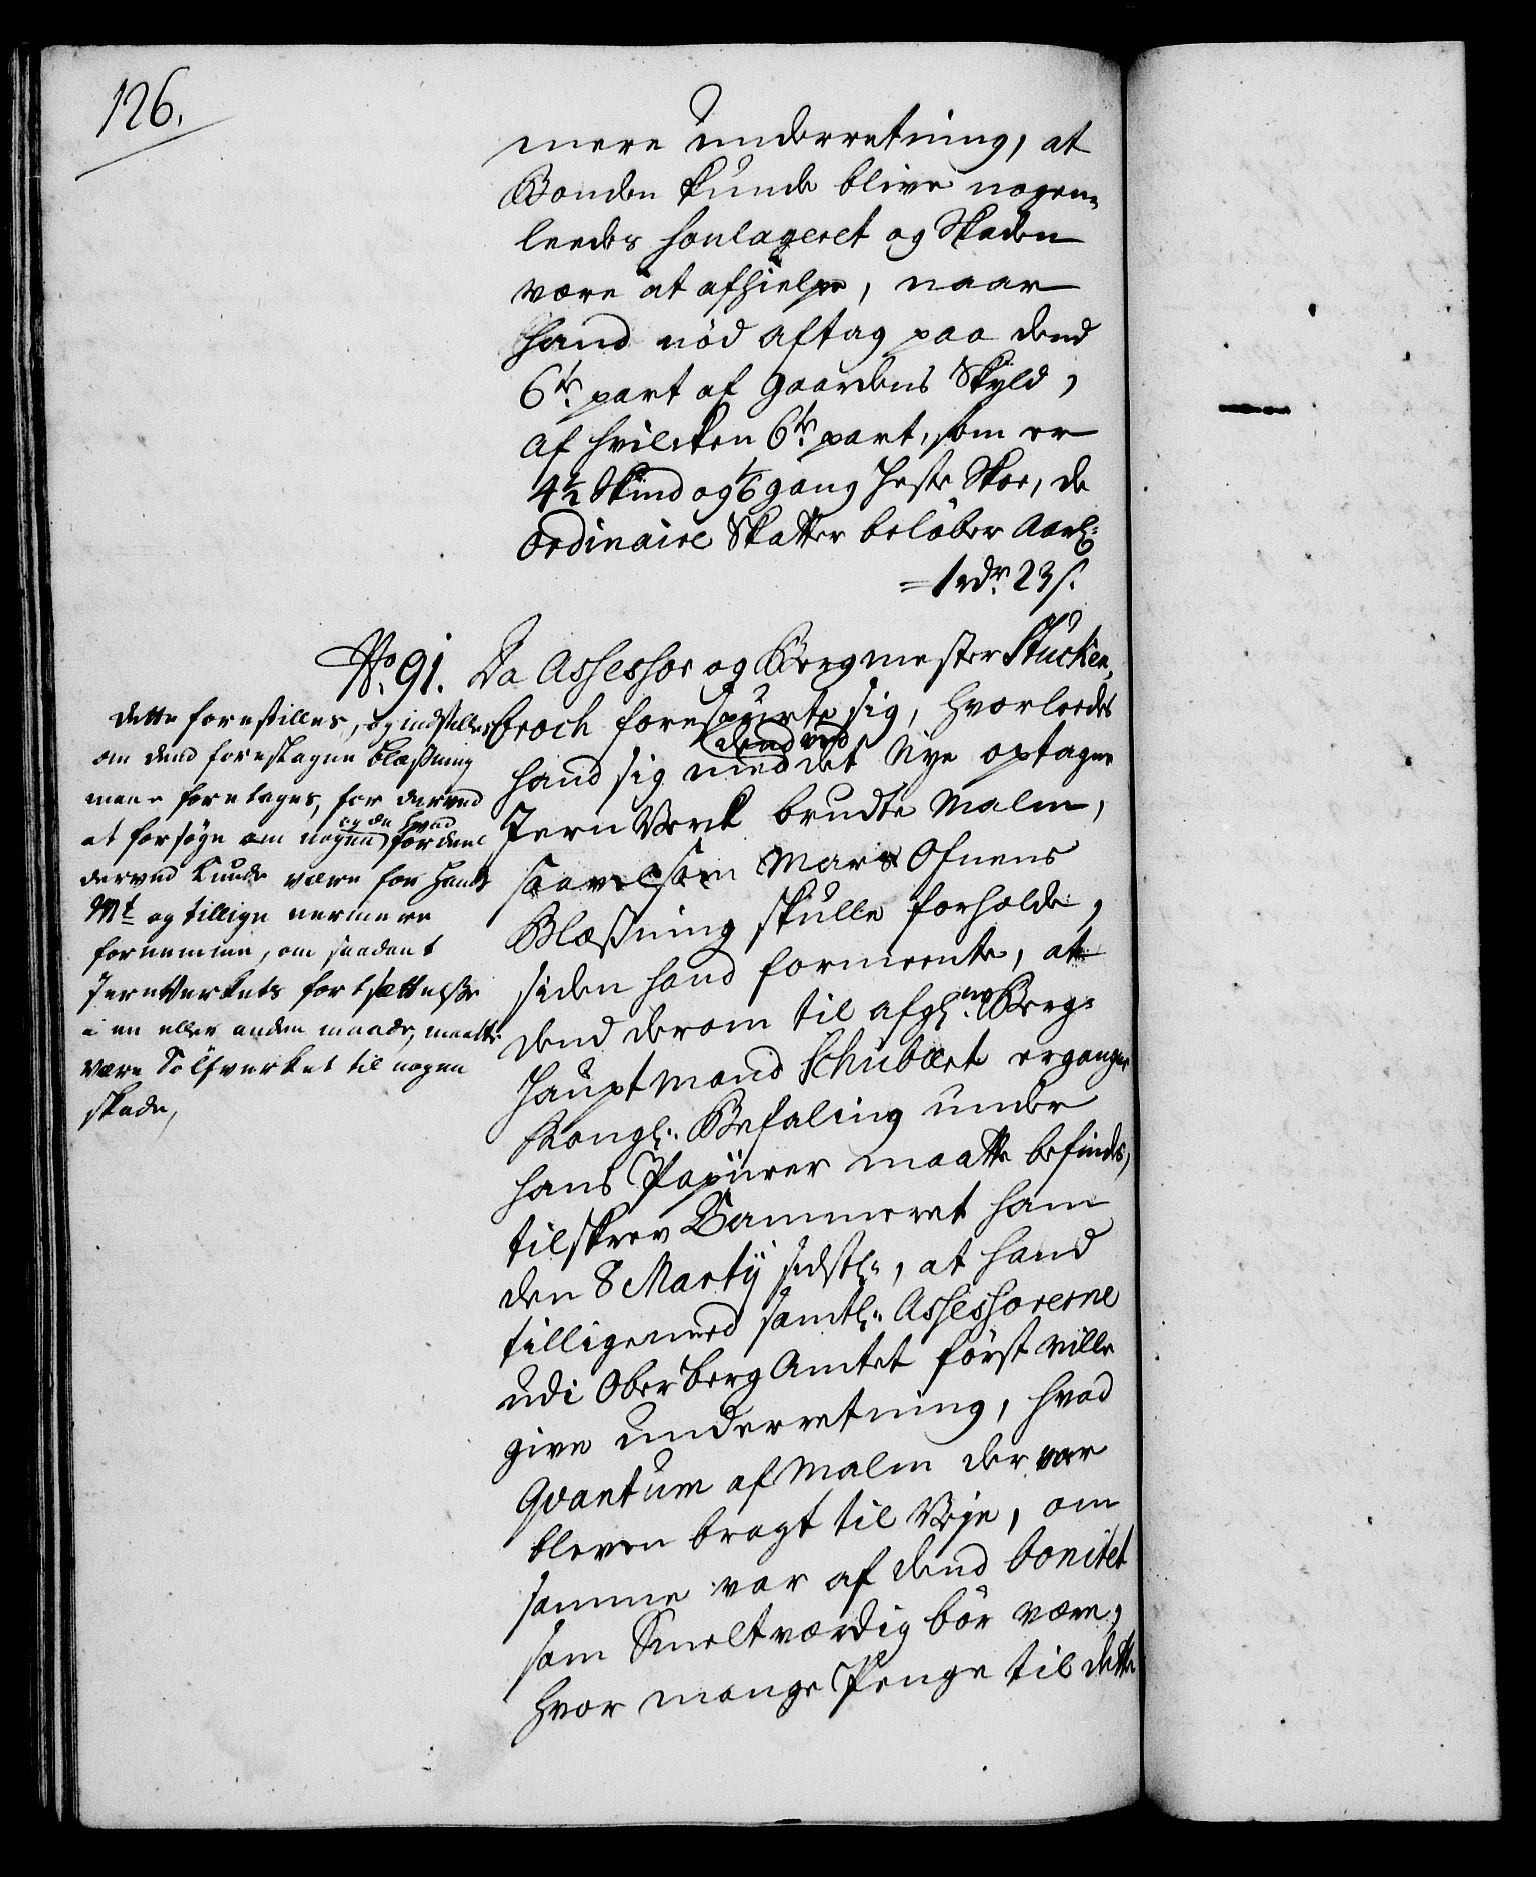 126.
mere underretning, at
Bonden kunde blive nogen-
leedes soulageret og Skaden
være at afhielpe, naar
hand nöd aftag paa dend
6te part af Gaardens Skyld,
af hvilcken 6te part, som er
4½ Skind og 1/6 gang Heste Skoe, de
ordinaire Skatter belöber Aarl:
= 1 rdr. 23 s.
No. 91. Da Assessor og Bergmester Stucken-
broch forespurte sig, hvorleedes
dend ved
hand sig med det Nye optagne
Jern Verk brudte Malm,
saavelsom Mars Ofnens
Blæsning skulle forholde,
siden hand formeente, at
dend derom til afg: Berg-
Hauptmand Schubart ergangne
Kongl: Befaling under
hans Papiirer maatte befindes,
tilskrev Cammeret ham
den 8 Martij sidstl:, at hand
tilligemed samtl: Assessorerne
udi OberbergAmtet först ville
give underretning, hvad
Qvantum af Malm der var
bleven bragt til Veje, om
samme var af dend bonitet
som Smeltværdig bör være,
hvor mange Penge til dette
dette forestilles, og indstilles
om dend foreslagne Blæsning
maae foretages, for derved
og da hvad
at forsöge om nogen fordeel
derved kunde være for Hans
Mt. og tillige nermere
fornemme, om saadant
JernVerkets fortsættelse
i en eller anden maade, maatte
være Sölfverket til nogen
skade,